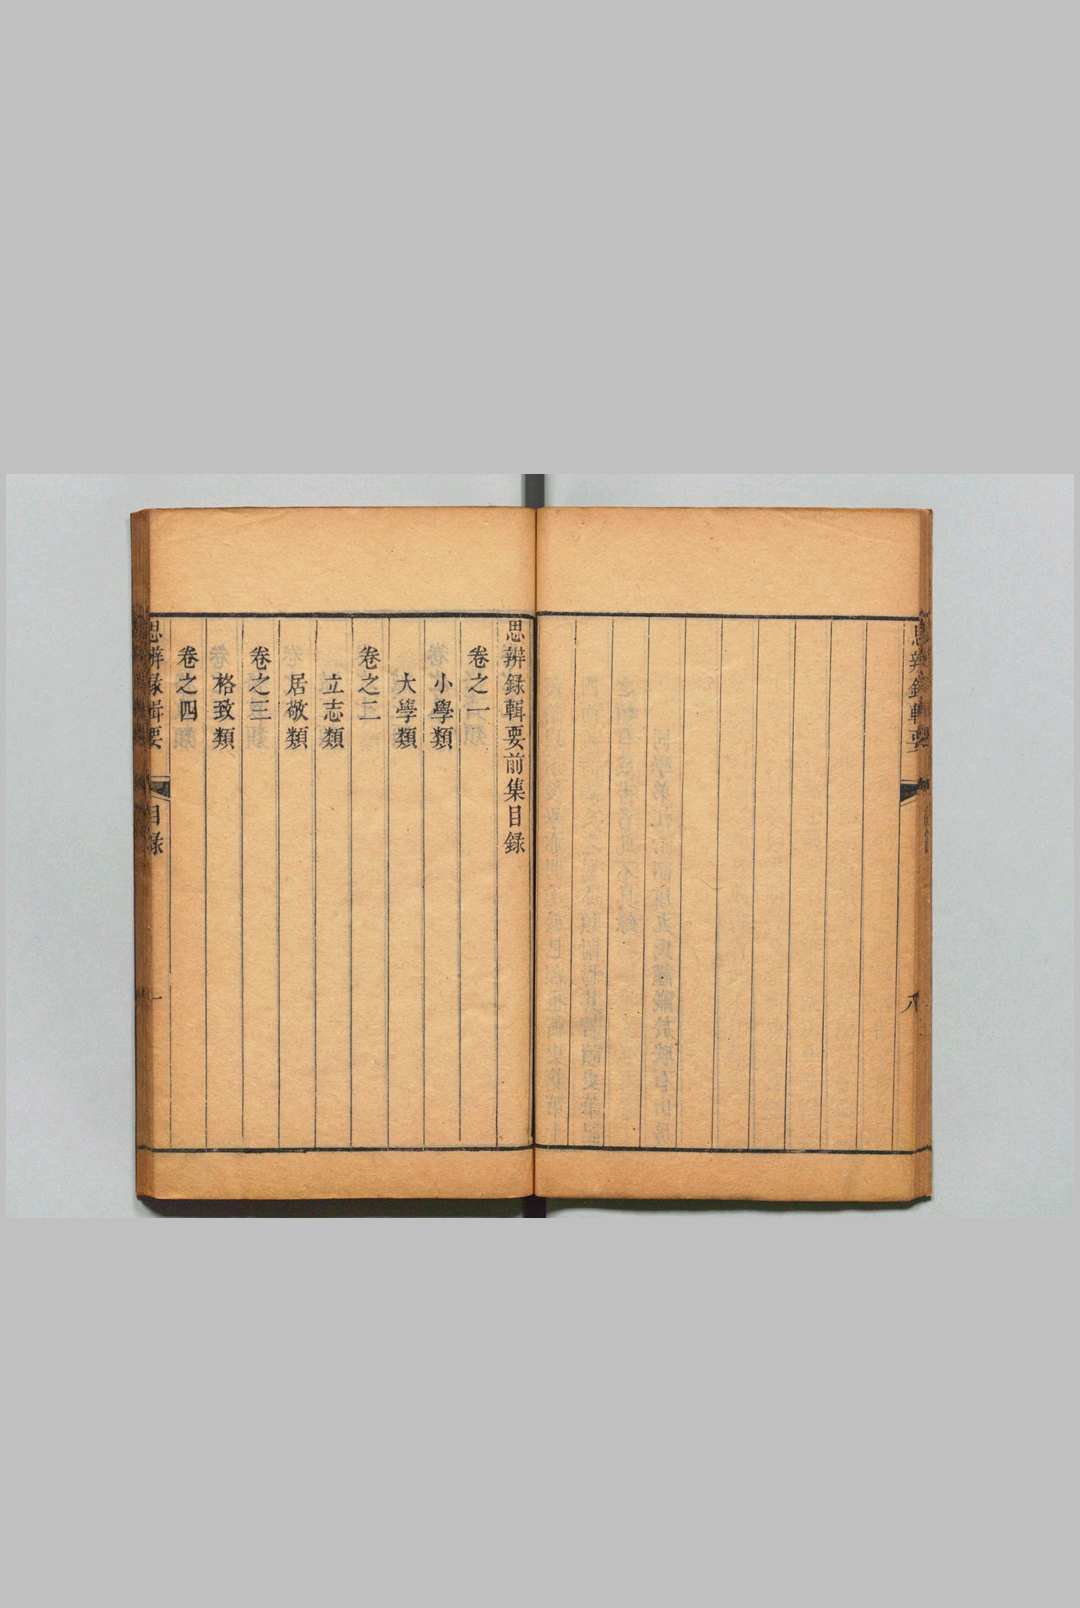 思辨錄輯要
八
思辨錄輯要前集目錄
卷之一
小學類
大學類
卷之二
立志類
居敬類
卷之三
格致類
卷之四
思辨錄輯要
目錄
一